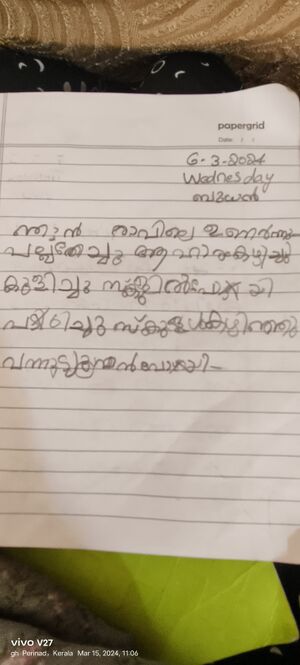 papergrid
Date: / /
6-3-2024
Wednesday
ബുധൻ
ഞാൻ രാവിലെ ഉണർന്നു
പല്ലുതേച്ചു ആഹാരംകഴിച്ചു
കുളിച്ചു സ്കൂളിൽപോയി
പഠിച്ചു സ്കൂൾകഴിഞ്ഞു
vivo V27
gh Perinad, Kerala Mar 15, 2024, 11:06